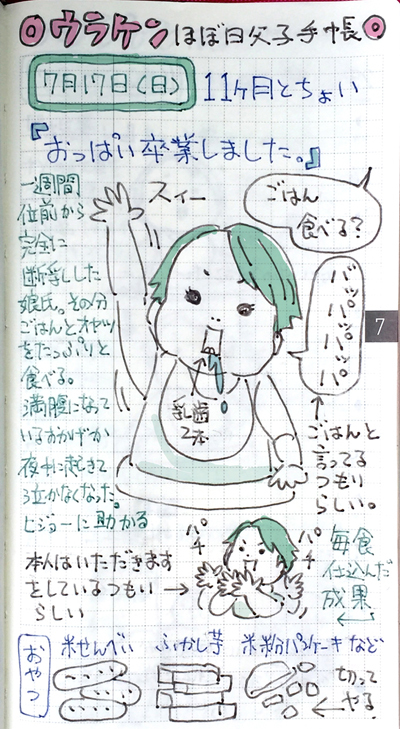 ウラケン ほぼ日父子手帳
7月17日(日) 11ヶ月とちょい
『おっぱい卒業しました。』
一週間
位前から
完全に
断乳した
娘氏。その分
ごはんとオヤツ
をたっぷりと
食べる。
満腹になって
いるおかげか
夜中に起きて
泣かなくなった。
ヒジョーに助かる
スィー
ごはん
食べる?
パッパッパッパ
7
↑
ごはんと
言ってる
つもり
らしい。
乳歯
2本
本人はいただきます
をしているつもり→
らしい
パチ
パチ
毎食
仕込んだ
成果
おやつ
米せんべい ふかし芋 米粉パンケーキ など
切って
やる